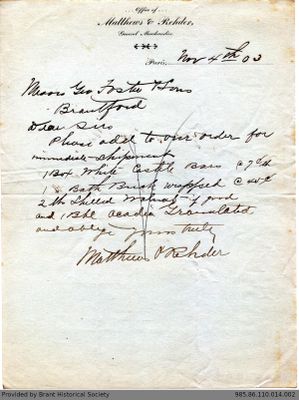 Office of
Matthews & Rehder,
General Merchandise
Paris, Nov 4th 03
Messrs Geo Foster & Sons
Brantford
Dear Sirs
Please add to our order for
immediate shipment
1 Box White Castle Bars
1 Bath Brick wrapped
2 lb Shelled Walnuts if Good
and 1 Bbl Acadia Granulated
and oblige Yours truly
Matthews & Rehder
Provided by Brant Historical Society
985.86.110.014.002